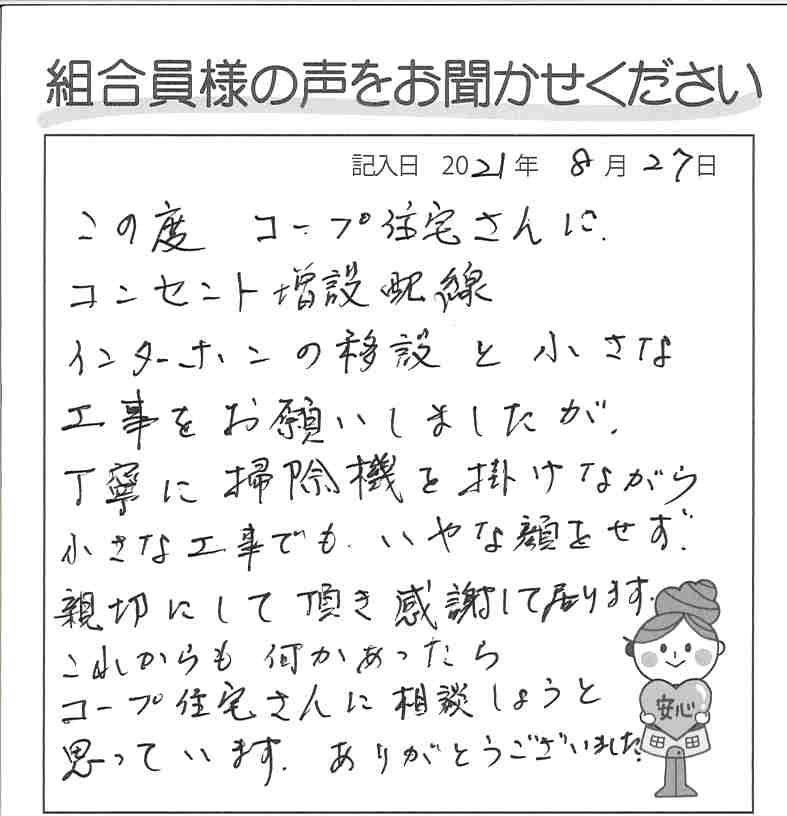 組合員様の声をお聞かせください
記入日 2021年 8月27日
この度 コープ住宅さんに、
コンセント増設配線
インターホンの移設と小さな
工事をお願いしましたが、
丁寧に掃除機を掛けながら
小さな工事でも、いやな顔をせず、
親切にして頂き感謝して居ります。
これからも何かあったら
コープ住宅さんに相談しようと
思っています。ありがとうございました。
安心